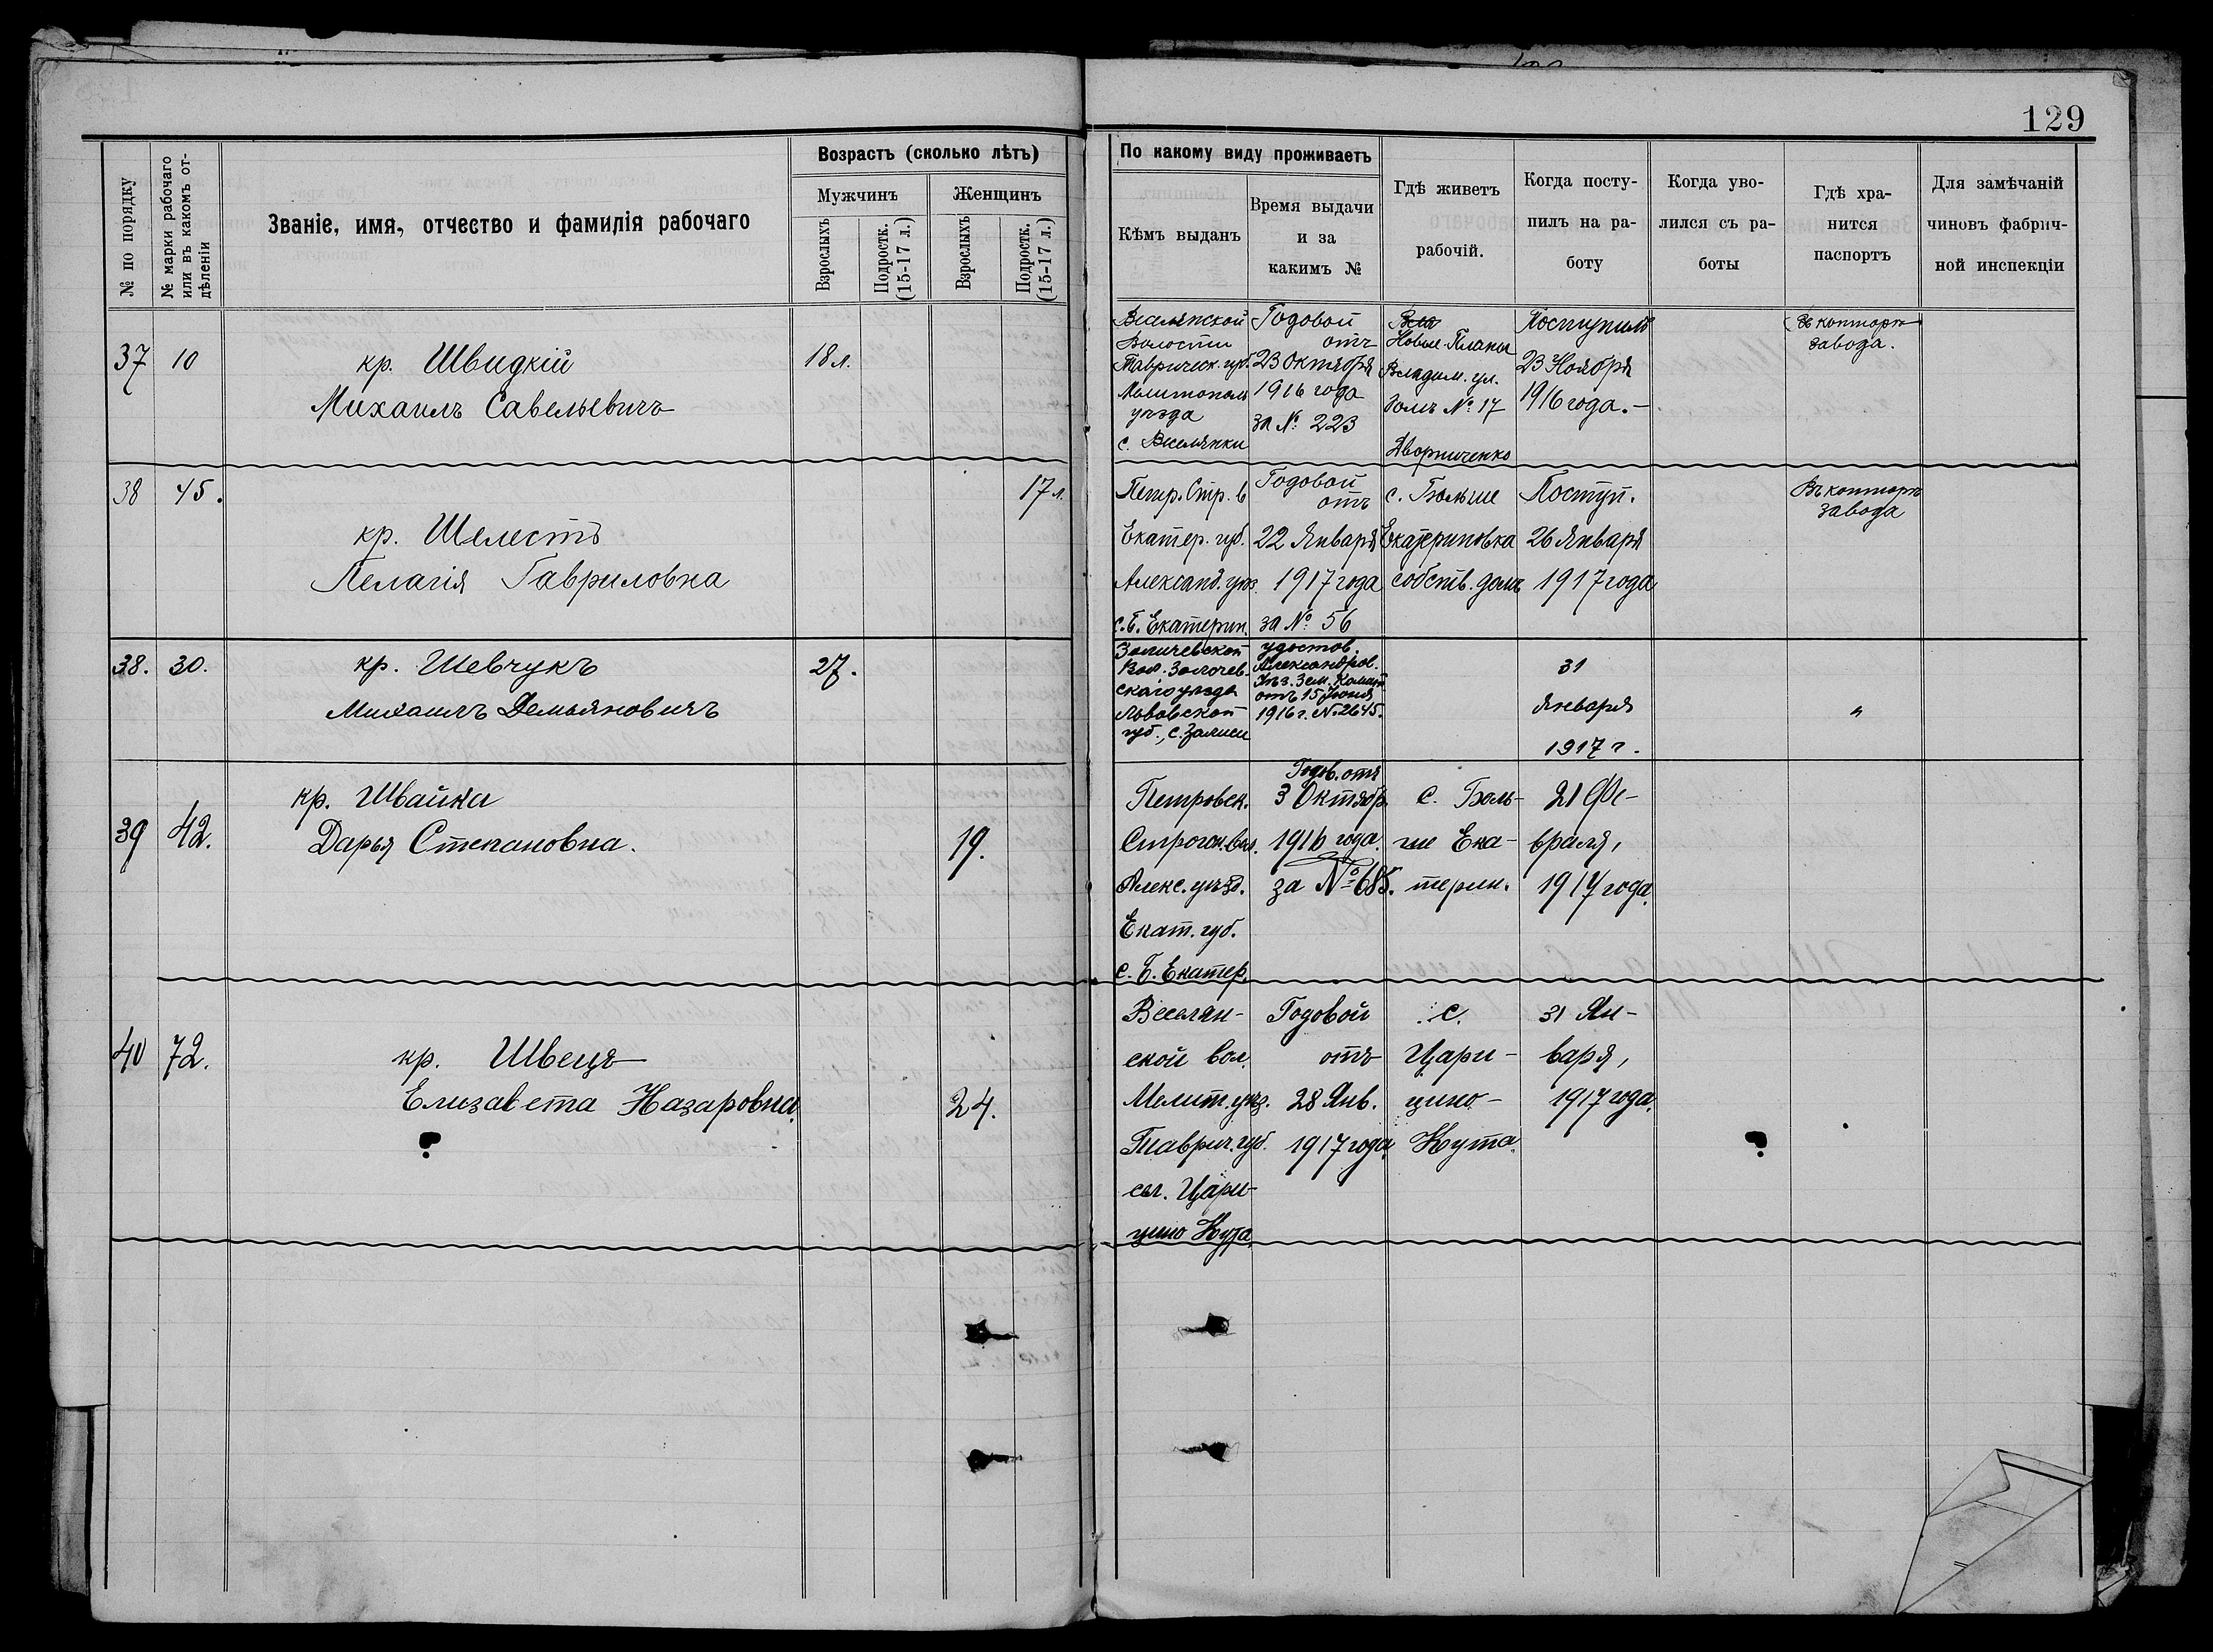 129
№ по порядку
№ марки рабочаго
или въ какомъ от-
дѣленіи
Званіе, имя, отчество и фамилія рабочаго
Возрастъ (сколько лѣтъ)
Мужчинъ
Женщинъ
Взрослыхъ
Подростк.
(15-17 л.)
Взрослыхъ
Подростк.
(15-17 л.)
По какому виду проживаетъ
Кѣмъ выданъ
Время выдачи
и за
какимъ №
Гдѣ живетъ
рабочій.
Когда посту-
пилъ на ра-
боту
Когда уво-
лился съ ра-
боты
Гдѣ хра-
нится
паспортъ
Для замѣчаній
чиновъ фабрич-
ной инспекціи
37
10
кр. Швидкій
Михаилъ Савельевичъ
18 л.
Веселянской
Волости
Тавричск. губ.
Мелитополь
уѣзда
с. Веселянки
Годовой
отъ
23 Октября
1916 года
за № 223
Новые Планы
Владим. ул.
домъ № 17
Дворниченко
Поступилъ
23 Ноября
1916 года.-
Въ конторѣ
завода.
38
45.
кр. Шелестъ
Пелагія Гавриловна
17 л.
Петр. Стр. в
Екатер. губ.
Александ. уѣз.
с. Б. Екатерин.
Годовой
отъ
22 Января
1917 года
за № 56
с. Больше
Екатериновка
собств. домъ
Поступ.
26 Января
1917 года
Въ конторѣ
завода
38.
30.
кр. Шевчукъ
Михаилъ Демьяновичъ
27.
Золичевской
Вол. Золочев-
скаго уѣзда
Львовской
губ., с.
удостов.
Александров.
Уѣз. Зем. Комит
отъ 15 Іюня
1916 г. № 2645.
31
Января
1917 г.
"
39
42.
кр. Швайка
Дарья Степановна.
19.
Петровск.
Строгон. вол.
Алекс. уѣзд.
Екат. губ.
с. Б. Екатер.
Годов. отъ
3 Октябр.
1916 года.
за № 685.
с. Боль-
ше Ека-
терин.
21 Фе-
враля,
1917 года.
40
72.
кр. Швецъ
Елизавета Назаровна
?
24.
Веселян-
ской вол.
Мелит. уѣз.
Таврич. губ.
сел. Цари-
цино Кута.
Годовой
отъ
28 Янв.
1917 года.
с.
Цари-
цино-
Кута.
31 Ян-
варя,
1917 года.
?